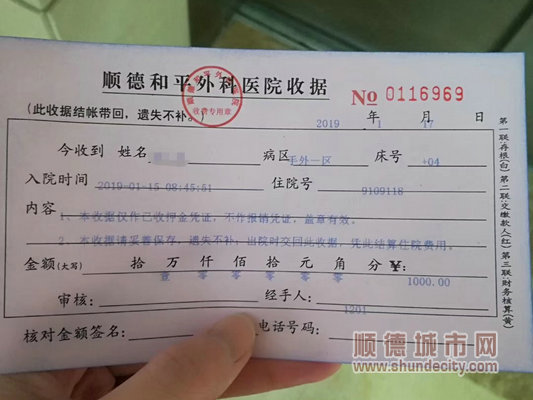 顺德和平外科医院收据
收费专用章
No 0116969
(此收据结帐带回,遗失不补。)
2019 年 1 月 17 日
今收到 姓名 病区 手外一区 床号 +04
入院时间 2019-01-15 08:45:51 住院号 9109118
内容 1、本收据仅作已收押金凭证,不作报销凭证,盖章有效。
2、本收据请妥善保存,遗失不补,出院时交回此收据,凭此结算住院费用。
金额(大写) 拾 万 仟 佰 拾 元 角 分 ¥: 1000.00
壹 零 零 零 零
审核: 经手人: 1201
核对金额签名: 电话号码:
第一联:存根(白) 第二联:交缴款人(红) 第三联:财务核算(黄)
顺德城市网
www.shundecity.com